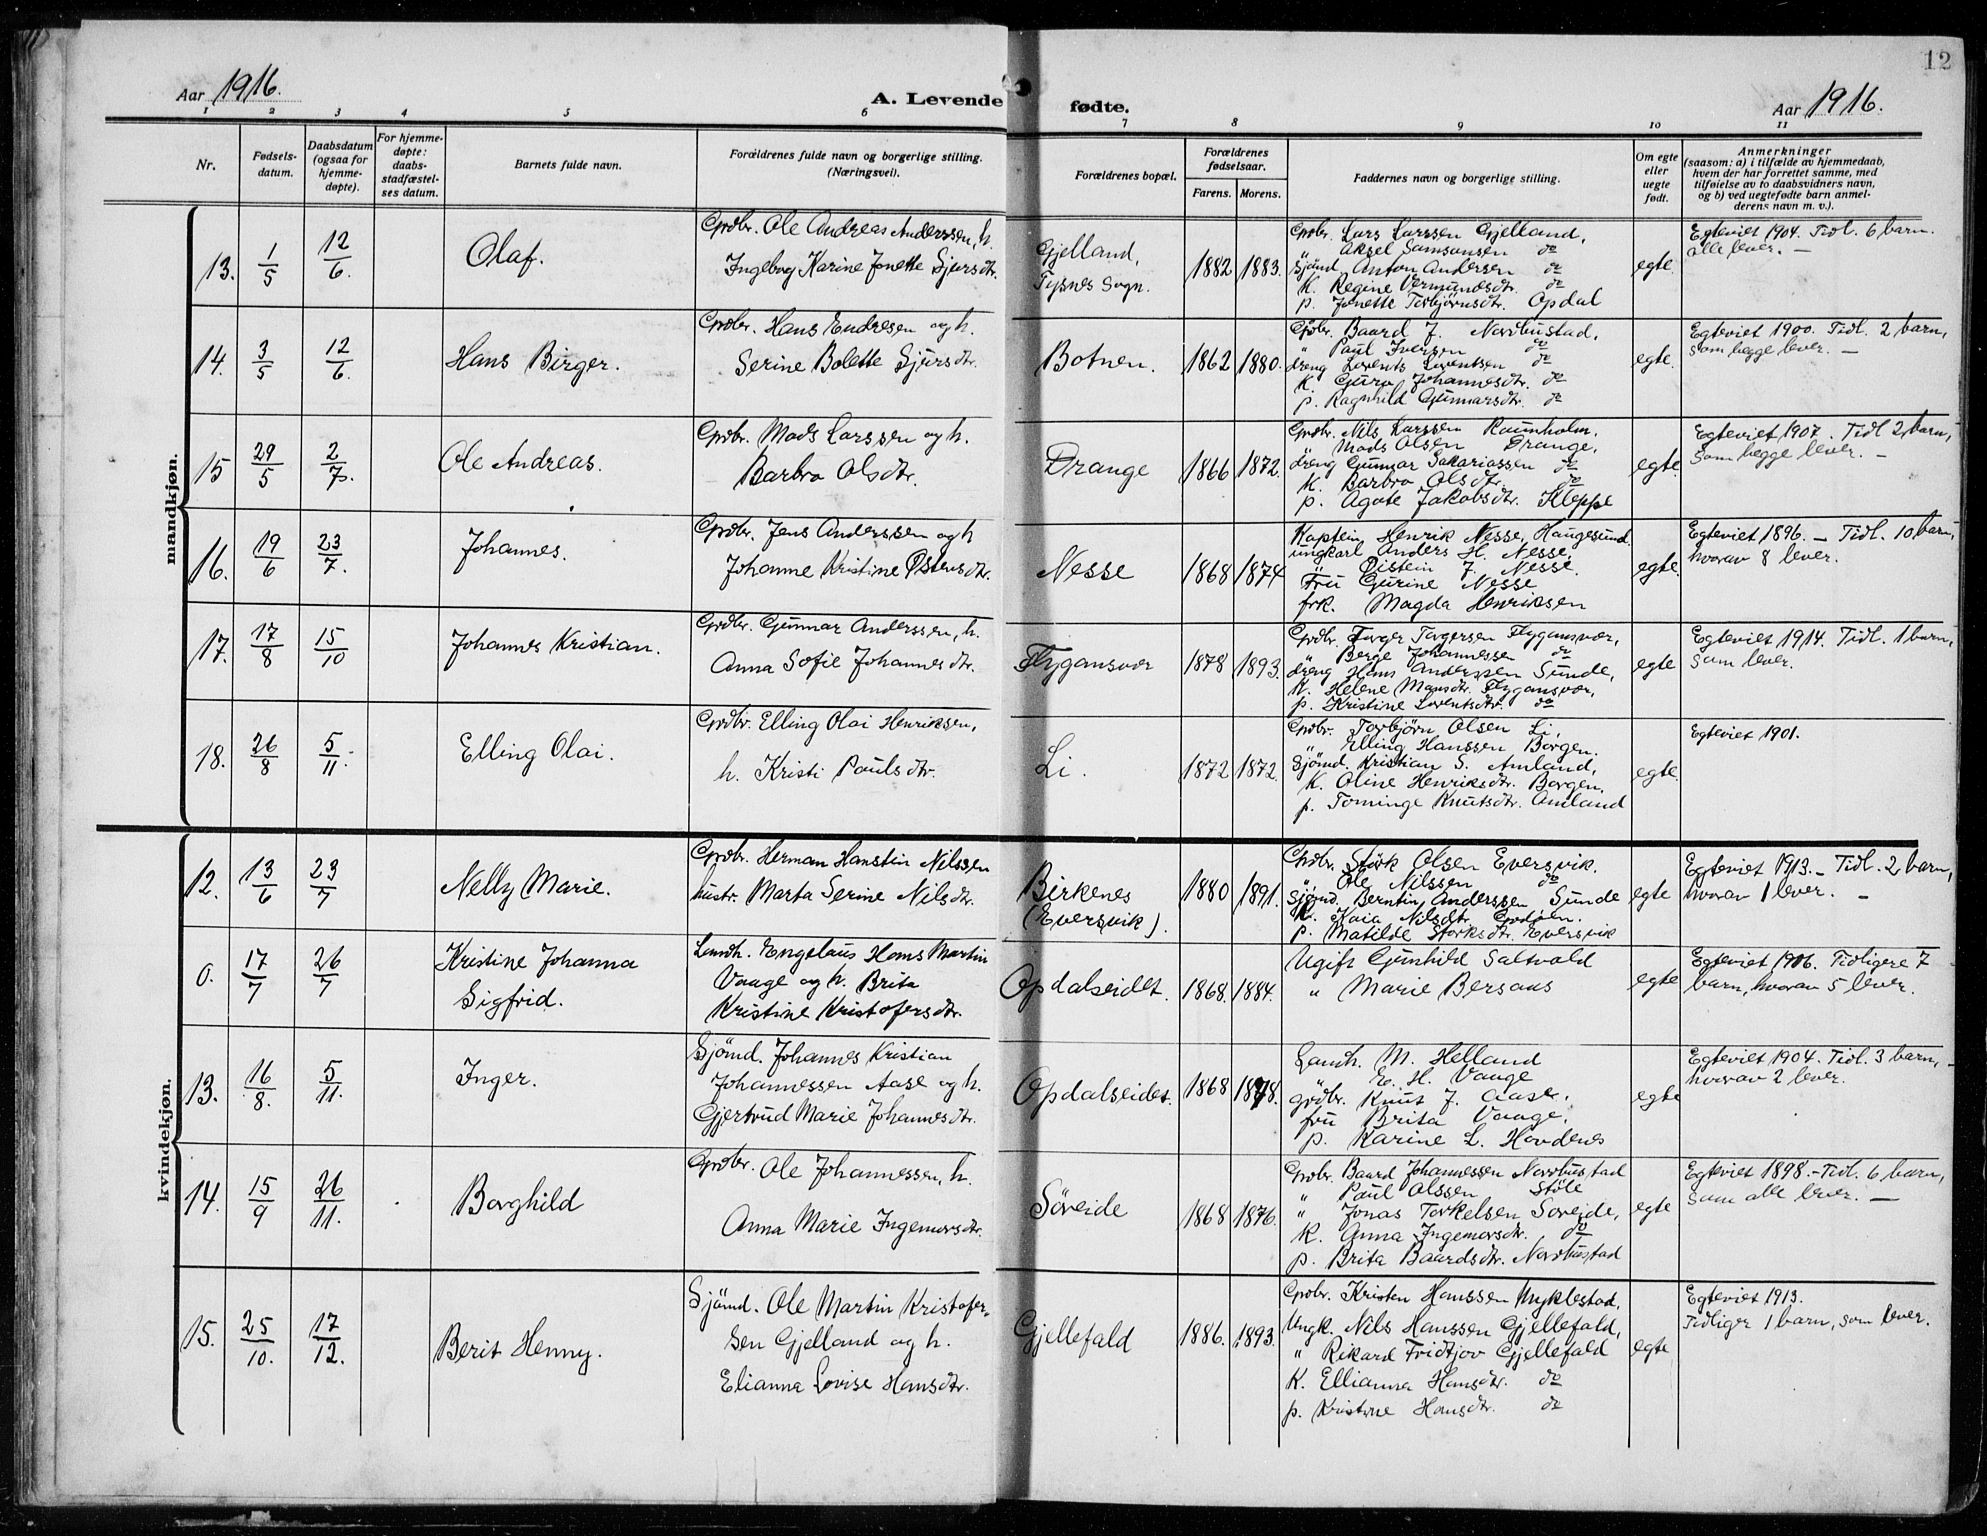 12
Aar 1916.
A. Levende fødte.
Aar 1916.
1 2 3 4 5 6 7 8 9 10 11
Nr.
Fødsels-
datum.
Daabsdatum
(ogsaa for
hjemme-
døpte).
For hjemme-
døpte:
daabs-
stadfæstel-
ses datum.
Barnets fulde navn.
Forældrenes fulde navn og borgerlige stilling.
(Næringsvei).
Forældrenes bopæl.
Forældrenes
fødselsaar.
Farens. Morens.
Faddernes navn og borgerlige stilling.
Om egte
eller
uegte
født.
Anmerkninger
(saasom: a) i tilfælde av hjemmedaab,
hvem der har forrettet samme, med
tilføielse av to daabsvidners navn,
og b) ved uegtefødte barn anmel-
derens navn m. v.).
mandkjøn.
13. 1/5 12/6 Olaf.
Grdbr. Ole Andreas Anderssen, h.
Ingeborg Karine Jonette Sjursdtr.
Gjelland,
Tysnes Sogn.
1882 1883.
Grdbr. Lars Larssen Gjelland,
" Aksel Samsonsen do
Sjömd. Anton Andersen do
K. Regine Vermundsdtr. do
p. Jonette Torbjörnsdtr. Opdal
egte.
Egteviet 1904. Tidl. 6 barn.
alle lever. —
14. 3/5 12/6. Hans Birger.
Grdbr. Hans Endresen og h.
Serine Bolette Sjursdtr.
Botnen.
1862 1880.
Grdbr. Baard J. Nordhustad,
" Paul Iversen do
dreng Lorents Lorentsen do
K. Guro Johannesdtr. do
p. Ragnhild Gunnarsdtr. do
egte.
Egteviet 1900. Tidl. 2 barn,
som begge lever. —
15 29/5 2/7. Ole Andreas.
Grdbr. Mads Larssen og h.
Barbro Olsdtr.
Drange
1866 1872.
Grdbr. Nils Larssen Raunholm.
Mads Olsen Drange,
dreng Gunnar Sakariassen do
K. Barbro Olsdtr. do
p. Agate Jakobsdtr. Kleppe
egte
Egteviet 1907. Tidl 2 barn,
som begge lever. —
16. 19/6 23/7. Johannes.
Grdbr. Jens Anderssen og h
Johanne Kristine Østensdtr.
Nesse
1868 1874
Kaptein Henrik Nesse, Haugesund.
ungkarl Anders H. Nesse,
" Öistein J. Nesse.
Fru Gurine Nesse
frk. Magda Henriksen
egte.
Egteviet 1896. — Tidl. 10 barn,
hvorav 8 lever.
17. 17/8 15/10 Johannes Kristian.
Grdbr. Gunnar Anderssen, h.
Anna Sofie Johannesdtr.
Flygansvær
1878 1893.
Grdbr. Torger Torgersen Flygansvær,
" Berge Johannessen do
dreng Hans Anderssen Sunde,
K. Helene Mansdtr. Flygansvær,
p. Kristine Lorentsdtr. do
egte
Egteviet 1914. Tidl. 1 barn,
som lever.
18. 26/8 5/11. Elling Olai.
Grdbr. Elling Olai Henriksen,
h. Kristi Paulsdtr.
Li.
1872 1872.
Grdbr. Torbjörn Olsen Li,
" Elling Hanssen Borgen.
Sjömd. Kristian S. Amland,
K. Oline Henriksdtr. Borgen,
p. Tominge Knutsdtr. Amland
egte.
Egteviet 1901.
kvindekjøn.
12. 13/6 23/7 Nelly Marie.
Grdbr. Herman Hanstin Nilssen
hustr. Marta Serine Nilsdtr.
Birkenes
(Eversvik).
1880 1891.
Grdbr. Störk Olsen Eversvik.
" Ole Nilssen do
Sjömd. Berntin Anderssen Sunde
K. Kaia Nilsdtr.
p. Matilde Störksdtr. Eversvik
egte
Egteviet 1913. — Tidl. 2 barn,
hvorav 1 lever. —
0. 17/7 26/7 Kristine Johanna
Sigfrid.
Landh. Engelaus Hans Martin
Vaage og h. Brita
Kristine Kristofersdtr.
Opdalseidet.
1868. 1884.
Ugift Gunhild Saltvold
" Marie Bersaas
egte
Egteviet 1906. Tidligere 7
barn, hvorav 5 lever.
13. 16/8. 5/11. Inger.
Sjömd. Johannes Kristian
Johannessen Aase og h.
Gjertrud Marie Johannesdtr.
Opdalseidet.
1868 1878.
Landh. M. Helland
" E. H. Vaage
grdbr. Knut J. Aase,
fru Brita Vaage,
p. Karine L. Hovdenes
egte
Egteviet 1904. Tidl. 3 barn, —
hvorav 2 lever.
14. 15/9 26/11. Borghild
Grdbr. Ole Johannessen, h.
Anna Marie Ingemorsdtr.
Söreide
1868 1876.
Grdbr. Baard Johannessen Nordhustad
" Paul Olssen Stöle
" Jonas Torkelsen Söreide,
K. Anna Ingemorsdtr. do
p. Brita Baardsdtr. Nordhustad
egte
Egteviet 1898. — Tidl. 6 barn,
som alle lever. —
15. 25/10. 17/12. Berit Henny.
Sjömd. Ole Martin Kristofer-
sen Gjelland og h.
Elianna Lovise Hansdtr.
Gjellefald
1886. 1893.
Grdbr. Kristen Hanssen Myklestad,
Ungk. Nils Hanssen Gjellefald,
" Rikard Fridtjov Gjellefald
K. Ellianna Hansdtr. do
p. Kristine Hansdtr. do
egte
Egteviet 1913.
Tidliger 1 barn, som lever.